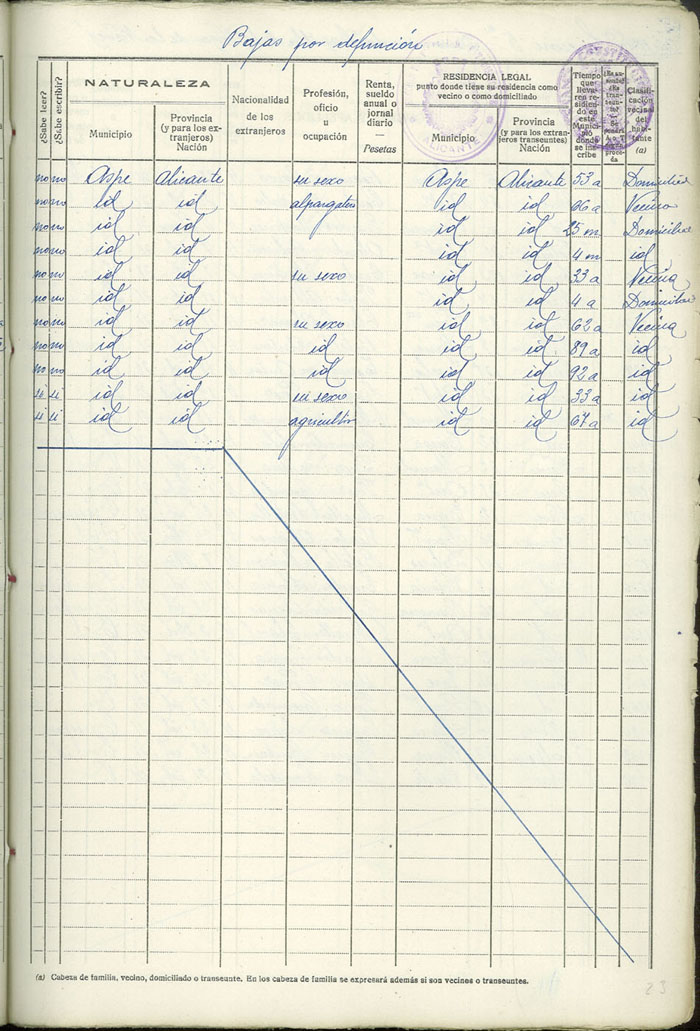 Bajas por defunción
¿Sabe leer?
¿Sabe escribir?
NATURALEZA
Municipio
Provincia
(y para los ex-
tranjeros)
Nación
Nacionalidad
de los
extranjeros
Profesión,
oficio
u
ocupación
Renta,
sueldo
anual o
jornal
diario
—
Pesetas
RESIDENCIA LEGAL
punto donde tiene su residencia como
vecino o como domiciliado
Municipio
Provincia
(y para los extran-
jeros transeuntes)
Nación
Tiempo
que
lleva-
ren re-
sidien-
do en
este
Munici-
pio
donde
se ins-
cribe
Clasifi-
cación
vecinal
del
habi-
tante
(a)
ALICANTE
no no Aspe Alicante su sexo Aspe Alicante 53 a
no no id id alpargatero id id 66 a Vecino
no no id id id id 25 m
no no id id id id 4 m id
no no id id su sexo id id 33 a Vecina
no no id id id id 4 a
no no id id su sexo id id 62 a Vecina
no no id id id id id 89 a id
no no id id id id id 92 a id
si si id id su sexo id id 33 a id
si si id id agricultor id id 67 a id
(a) Cabeza de familia, vecino, domiciliado o transeunte. En los cabeza de familia se expresará además si son vecinos o transeuntes.
23